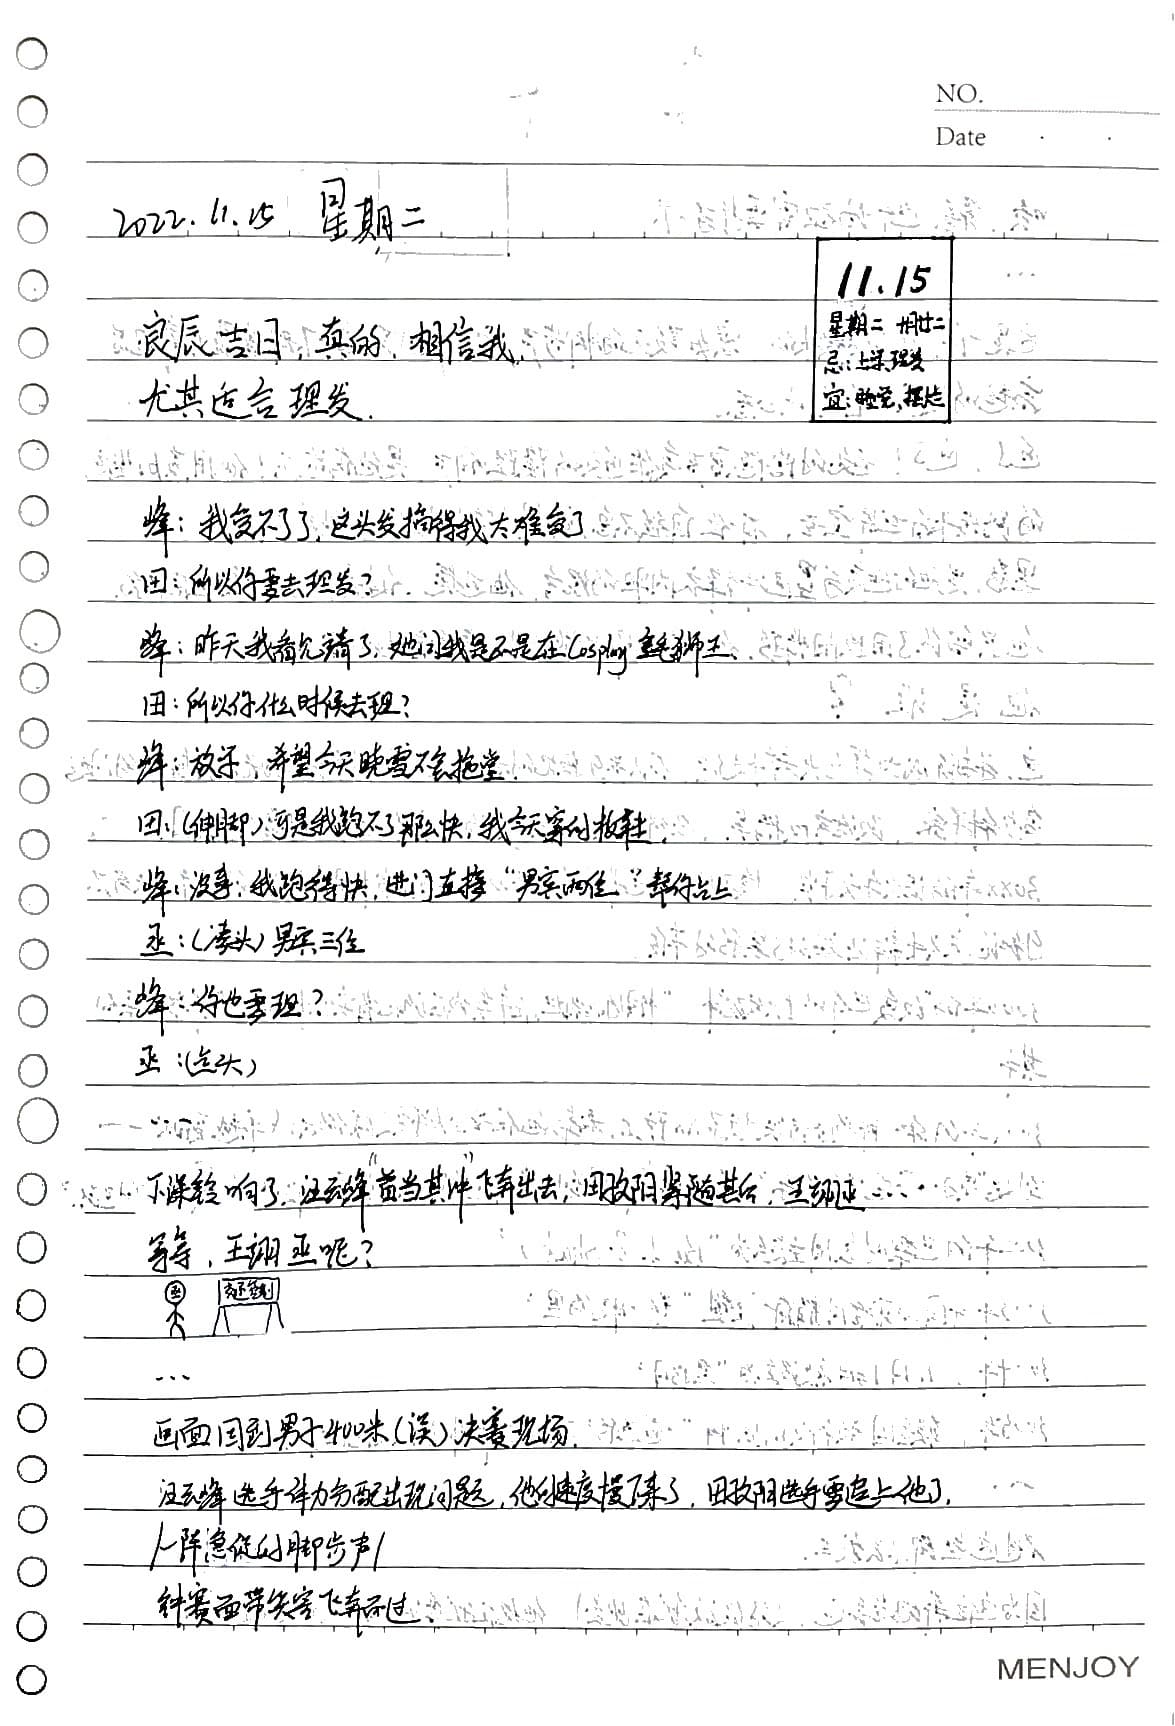 NO.
Date
2022.11.15 星期二
11.15
星期二 十月廿二
忌:上梁理发
宜:睡觉,摆烂
良辰吉日,真的,相信我.
尤其适合理发.
峰:我受不了了,这头发搞得我太难受了
田:所以你要去理发?
峰:昨天我看允错了,她问我是不是在Cosplay 金毛狮王.
田:所以你什么时候去理?
峰:放学,希望今天晓雪不会拖堂.
田:(伸脚)可是我跑不了那么快,我今天穿的板鞋.
峰:没事,我跑得快,进门直接“男宾两位”帮你占上
丞:(凑头)男宾三位
峰:你也要理?
丞:(点头)
下课铃响了,汪云峰“首当其冲”飞奔出去,田牧阳紧随其后,王翊丞……
等等,王翊丞呢?
丞
...
画面回到男子400米(误)决赛现场.
汪云峰选手体力分配出现问题,他的速度慢下来了,田牧阳选手要追上他了.
/一阵急促的脚步声/
钟赛面带笑容飞奔而过
MENJOY